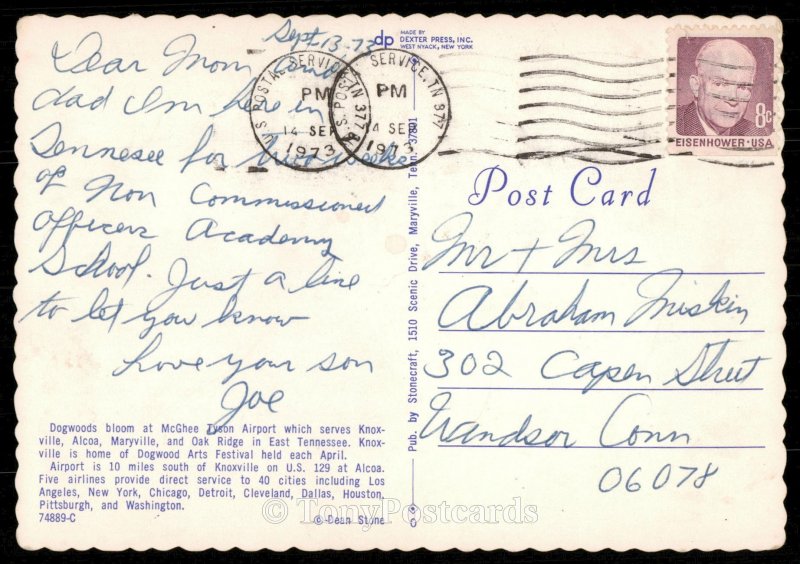 Sept. 13-73
Dear Mom and
dad Im here in
Tennesee for two weeks
of Non Commissioned
Officers Academy
School. Just a line
to let you know
Love your son
Joe
Dogwoods bloom at McGhee Tyson Airport which serves Knox-
ville, Alcoa, Maryville, and Oak Ridge in East Tennessee. Knox-
ville is home of Dogwood Arts Festival held each April.
Airport is 10 miles south of Knoxville on U.S. 129 at Alcoa.
Five airlines provide direct service to 40 cities including Los
Angeles, New York, Chicago, Detroit, Cleveland, Dallas, Houston,
Pittsburgh, and Washington.
74889-C
© Dean Stone
© TonyPostcards
Pub. by Stonecraft, 1510 Scenic Drive, Maryville, Tenn. 37801
dp
MADE BY
DEXTER PRESS, INC.
WEST NYACK, NEW YORK
U.S. POSTAL SERVICE, TN 377
PM
14 SEP
1973
U.S. POSTAL SERVICE, TN 377
PM
14 SEP
1973
8c
EISENHOWER·USA
Post Card
Mr + Mrs
Abraham Miskin
302 Capen Street
Windsor Conn
06078